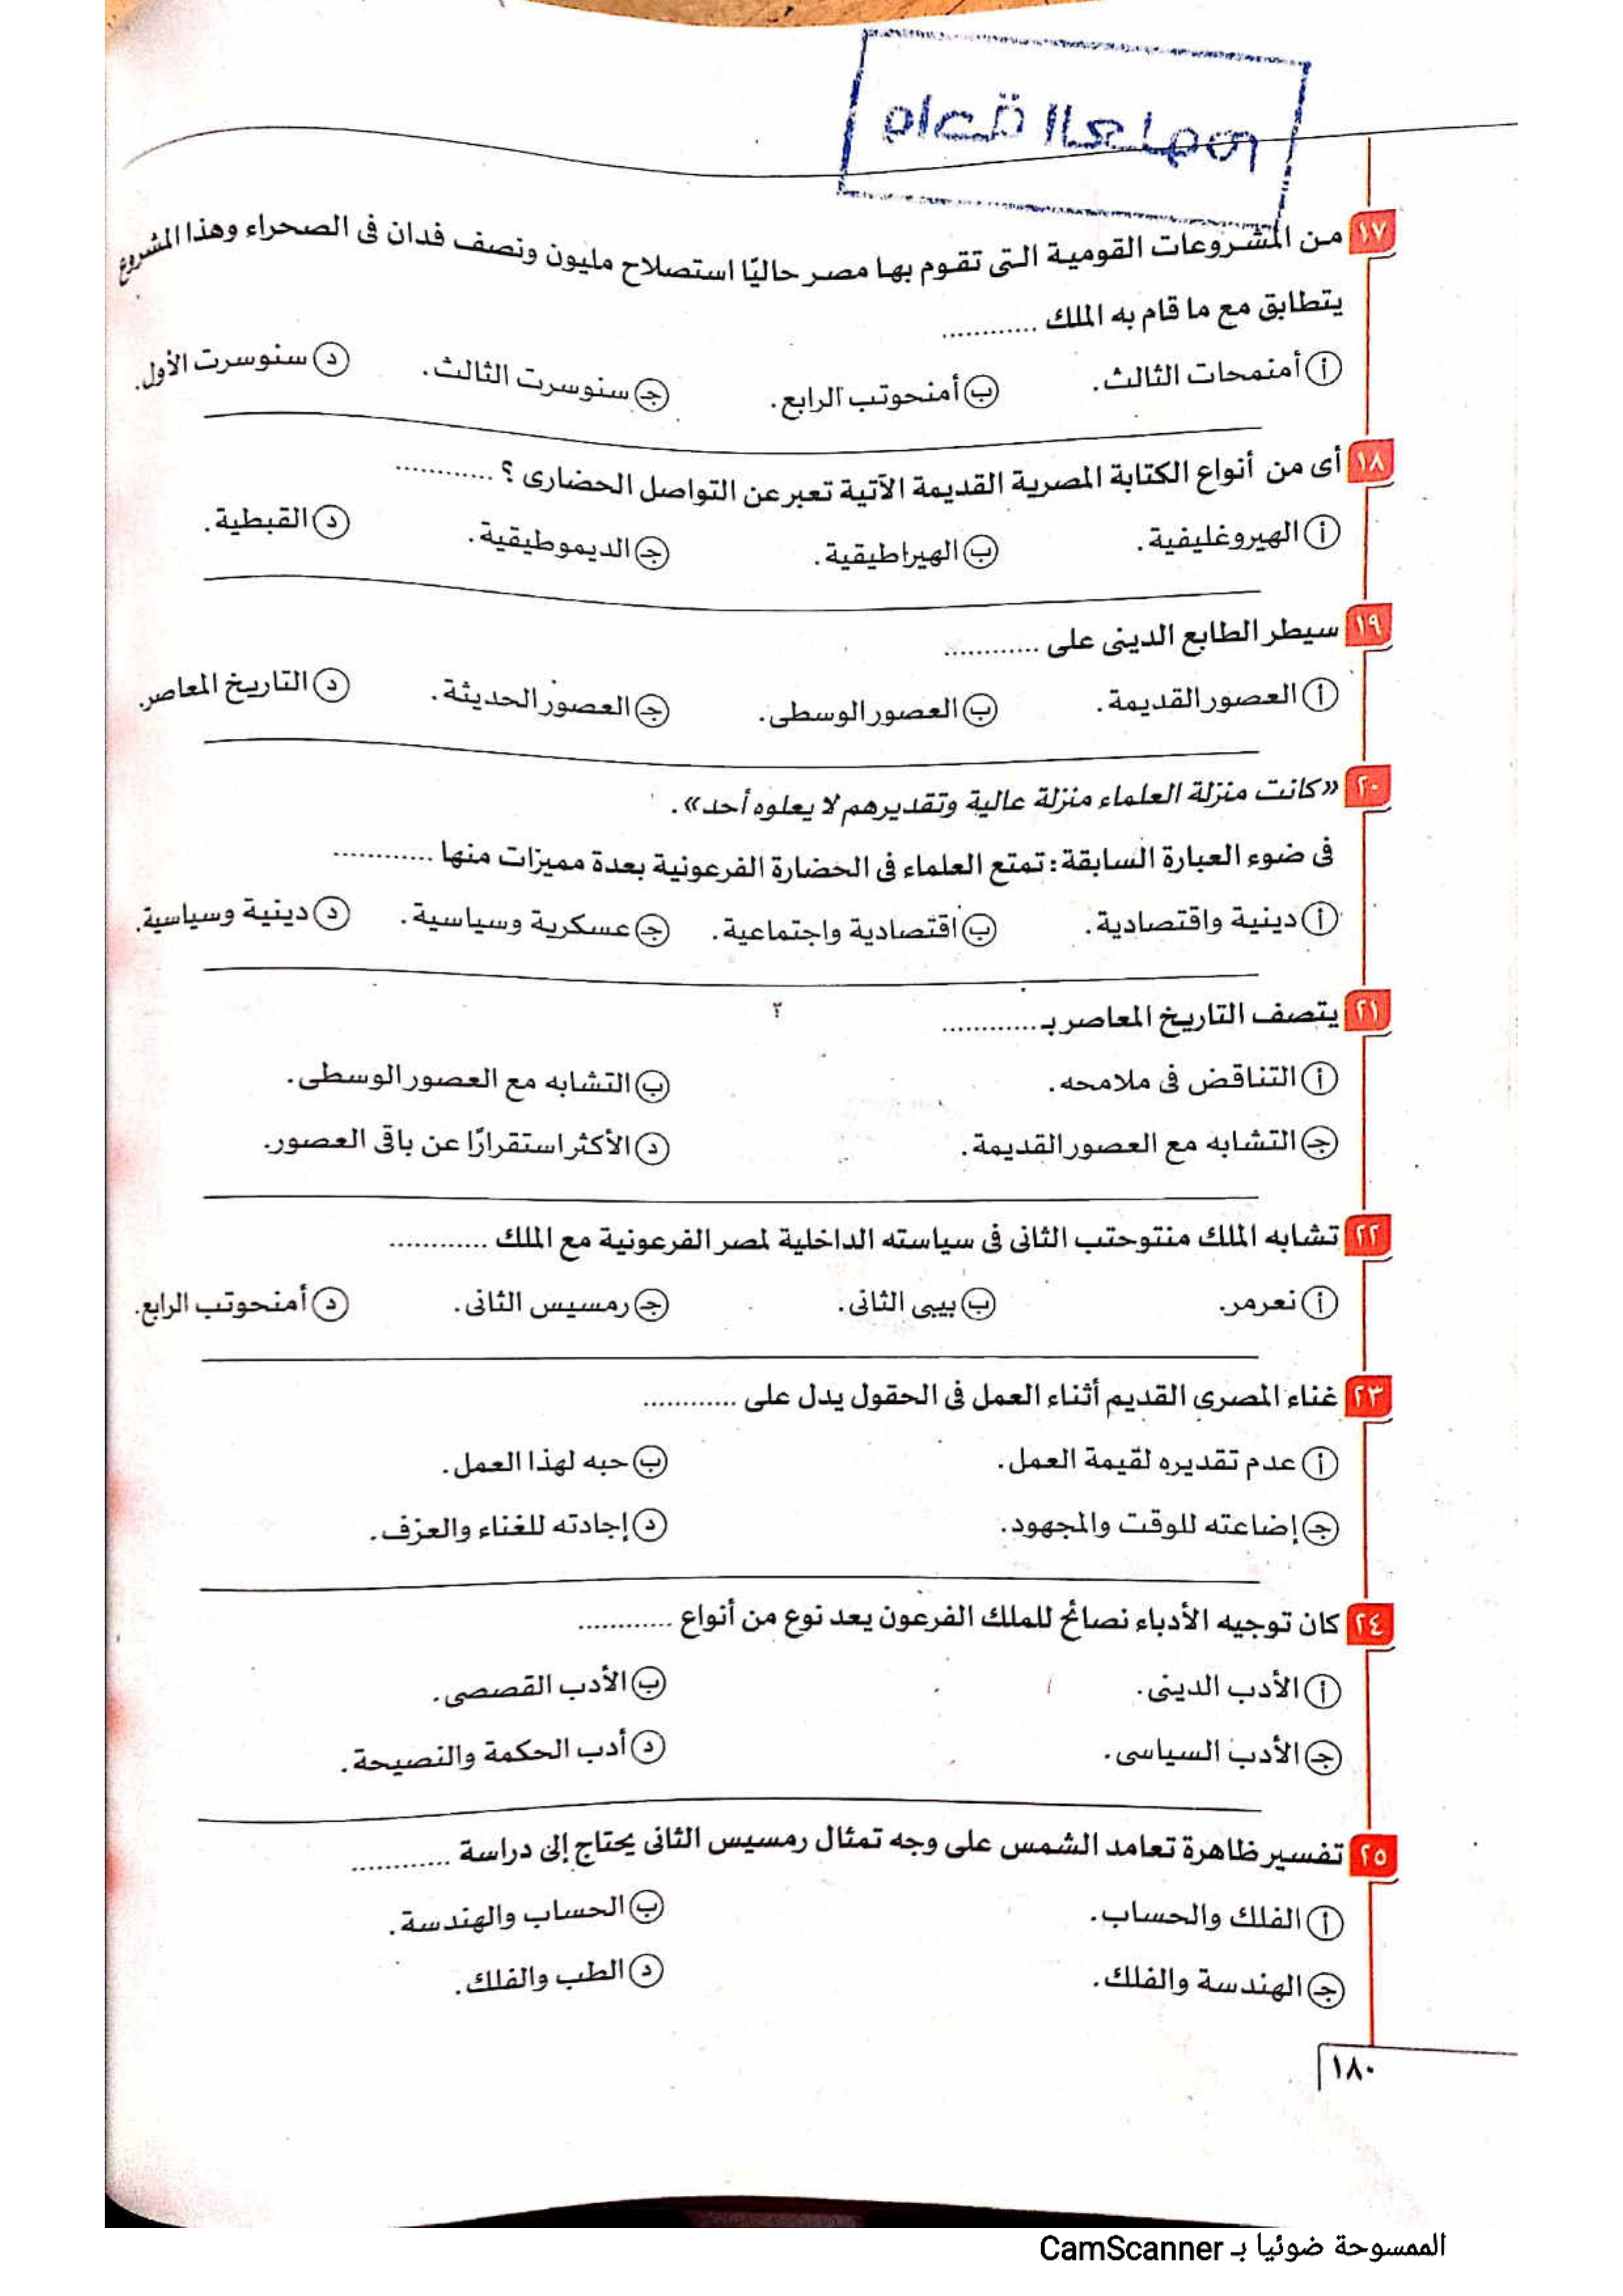 ١٧ من المشروعات القومية التى تقوم بها مصر حاليًا استصلاح مليون ونصف فدان فى الصحراء وهذا المشروع
يتطابق مع ما قام به الملك ............
أ أمنمحات الثالث. ب أمنحوتب الرابع. ج سنوسرت الثالث. د سنوسرت الأول.
١٨ أى من أنواع الكتابة المصرية القديمة الآتية تعبر عن التواصل الحضارى ؟ ............
أ الهيروغليفية. ب الهيراطيقية. ج الديموطيقية. د القبطية.
١٩ سيطر الطابع الدينى على ............
أ العصور القديمة. ب العصور الوسطى. ج العصور الحديثة. د التاريخ المعاصر.
٢٠ «كانت منزلة العلماء منزلة عالية وتقديرهم لا يعلوه أحد».
فى ضوء العبارة السابقة : تمتع العلماء فى الحضارة الفرعونية بعدة مميزات منها ............
أ دينية واقتصادية. ب اقتصادية واجتماعية. ج عسكرية وسياسية. د دينية وسياسية.
٢١ يتصف التاريخ المعاصر بـ ............
أ التناقض فى ملامحه. ب التشابه مع العصور الوسطى.
ج التشابه مع العصور القديمة. د الأكثر استقرارًا عن باقى العصور.
٢٢ تشابه الملك منتوحتب الثانى فى سياسته الداخلية لمصر الفرعونية مع الملك ............
أ نعرمر. ب بيبى الثانى. ج رمسيس الثانى. د أمنحوتب الرابع.
٢٣ غناء المصرى القديم أثناء العمل فى الحقول يدل على ............
أ عدم تقديره لقيمة العمل. ب حبه لهذا العمل.
ج إضاعته للوقت والمجهود. د إجادته للغناء والعزف.
٢٤ كان توجيه الأدباء نصائح للملك الفرعون يعد نوع من أنواع ............
أ الأدب الدينى. ب الأدب القصصى.
ج الأدب السياسى. د أدب الحكمة والنصيحة.
٢٥ تفسير ظاهرة تعامد الشمس على وجه تمثال رمسيس الثانى يحتاج إلى دراسة ............
أ الفلك والحساب. ب الحساب والهندسة.
ج الهندسة والفلك. د الطب والفلك.
١٨٠
الممسوحة ضوئيا بـ CamScanner